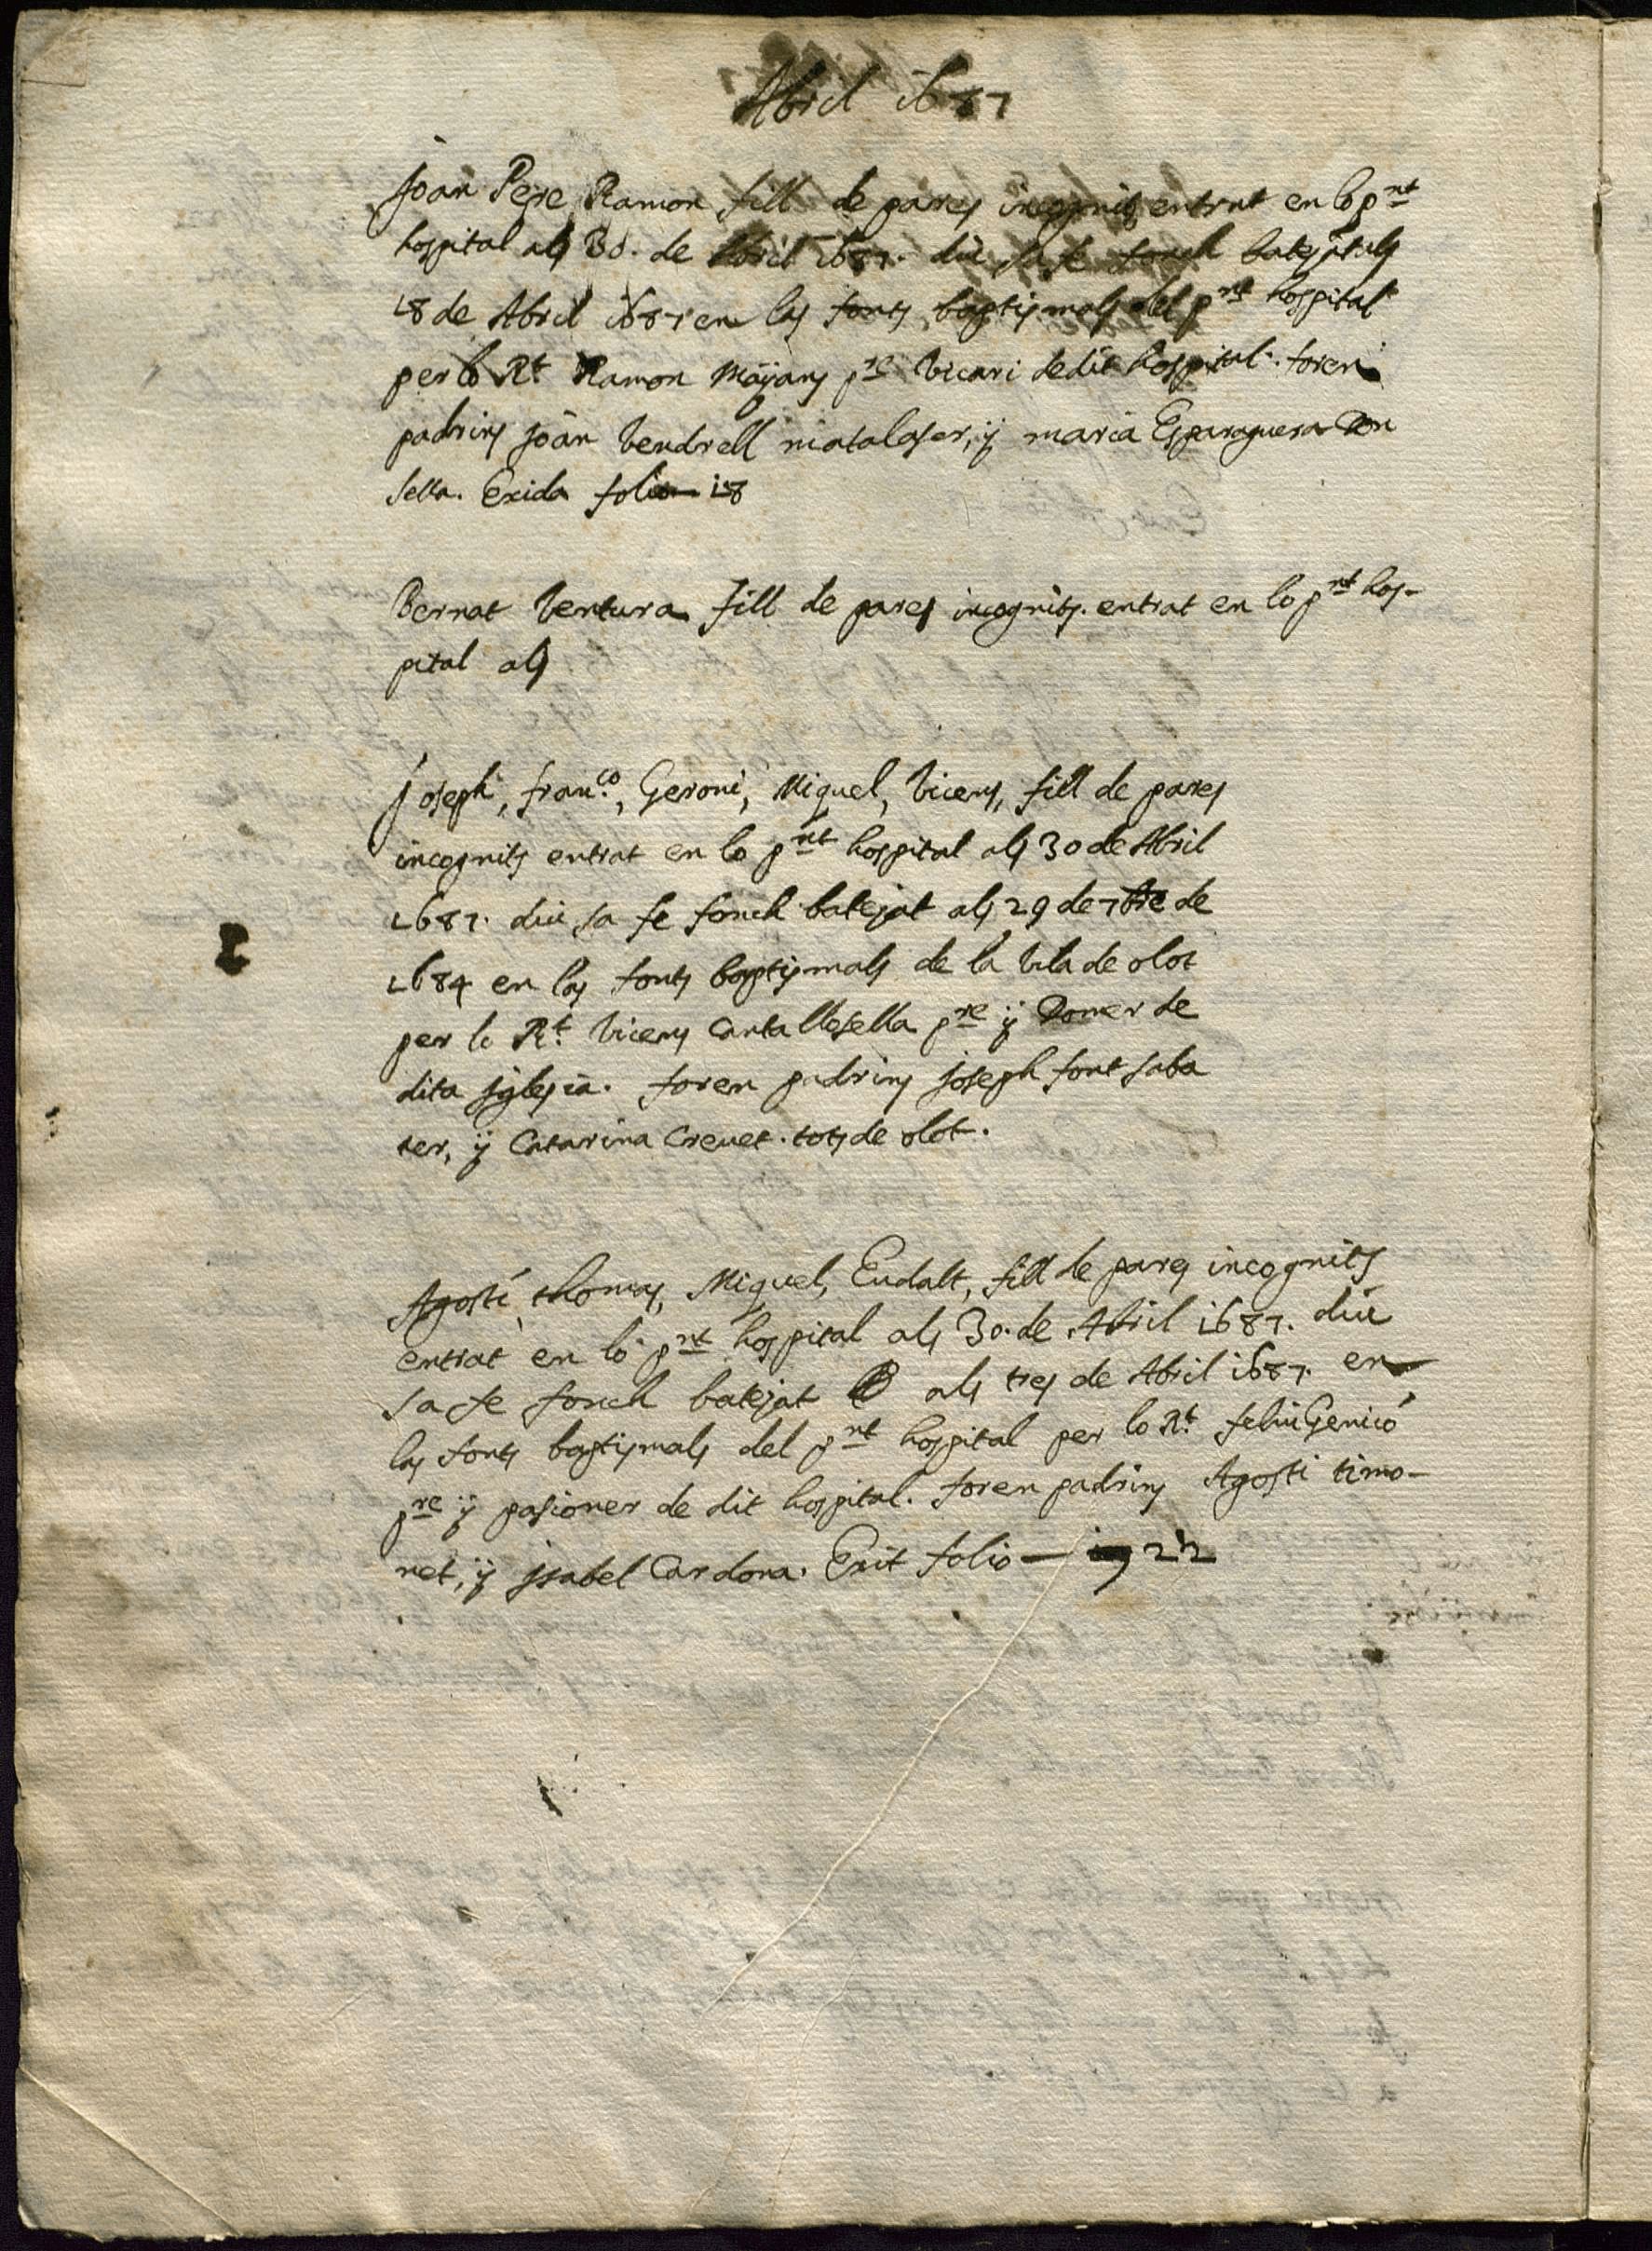 Abril 1687
Joan Pere Ramon fill de pares incognits entrat en lo pnt
hospital als 30. de Abril 1687. diu sa fe fonch batejat als
18 de Abril 1687 en las fonts baptismals del pnt hospital
per lo Rt Ramon Mayans pre Vicari de dit hospital. foren
padrins joan Vendrell matalaser, ÿ maria Esparaguera Don
sella. Exida folio 18
Bernat Ventura fill de pares incognits. entrat en lo pnt hos-
pital als
Joseph, Franco, Geroni, Miquel, Vicens, fill de pares
incognits entrat en lo pnt hospital als 30 de Abril
1687. diu sa fe fonch batejat als 29 de 7bre de
1684 en las fonts baptismals de la Vila de olot
per lo Rt Vicens Cantallosella pre ÿ Domer de
dita jglesia. foren padrins joseph font saba
ter, ÿ Catarina Crevet. tots de olot.
Agosti, thomas, Miquel, Eudalt, fill de pares incognits
entrat en lo pnt hospital als 30. de Abril 1687. diu
sa fe fonch batejat als tres de Abril 1687. en
las fonts baptismals del pnt hospital per lo Rt feliu Genicó
pre ÿ pasioner de dit hospital. foren padrins Agosti timo-
net, ÿ jsabel Cardona. Exit folio — 22